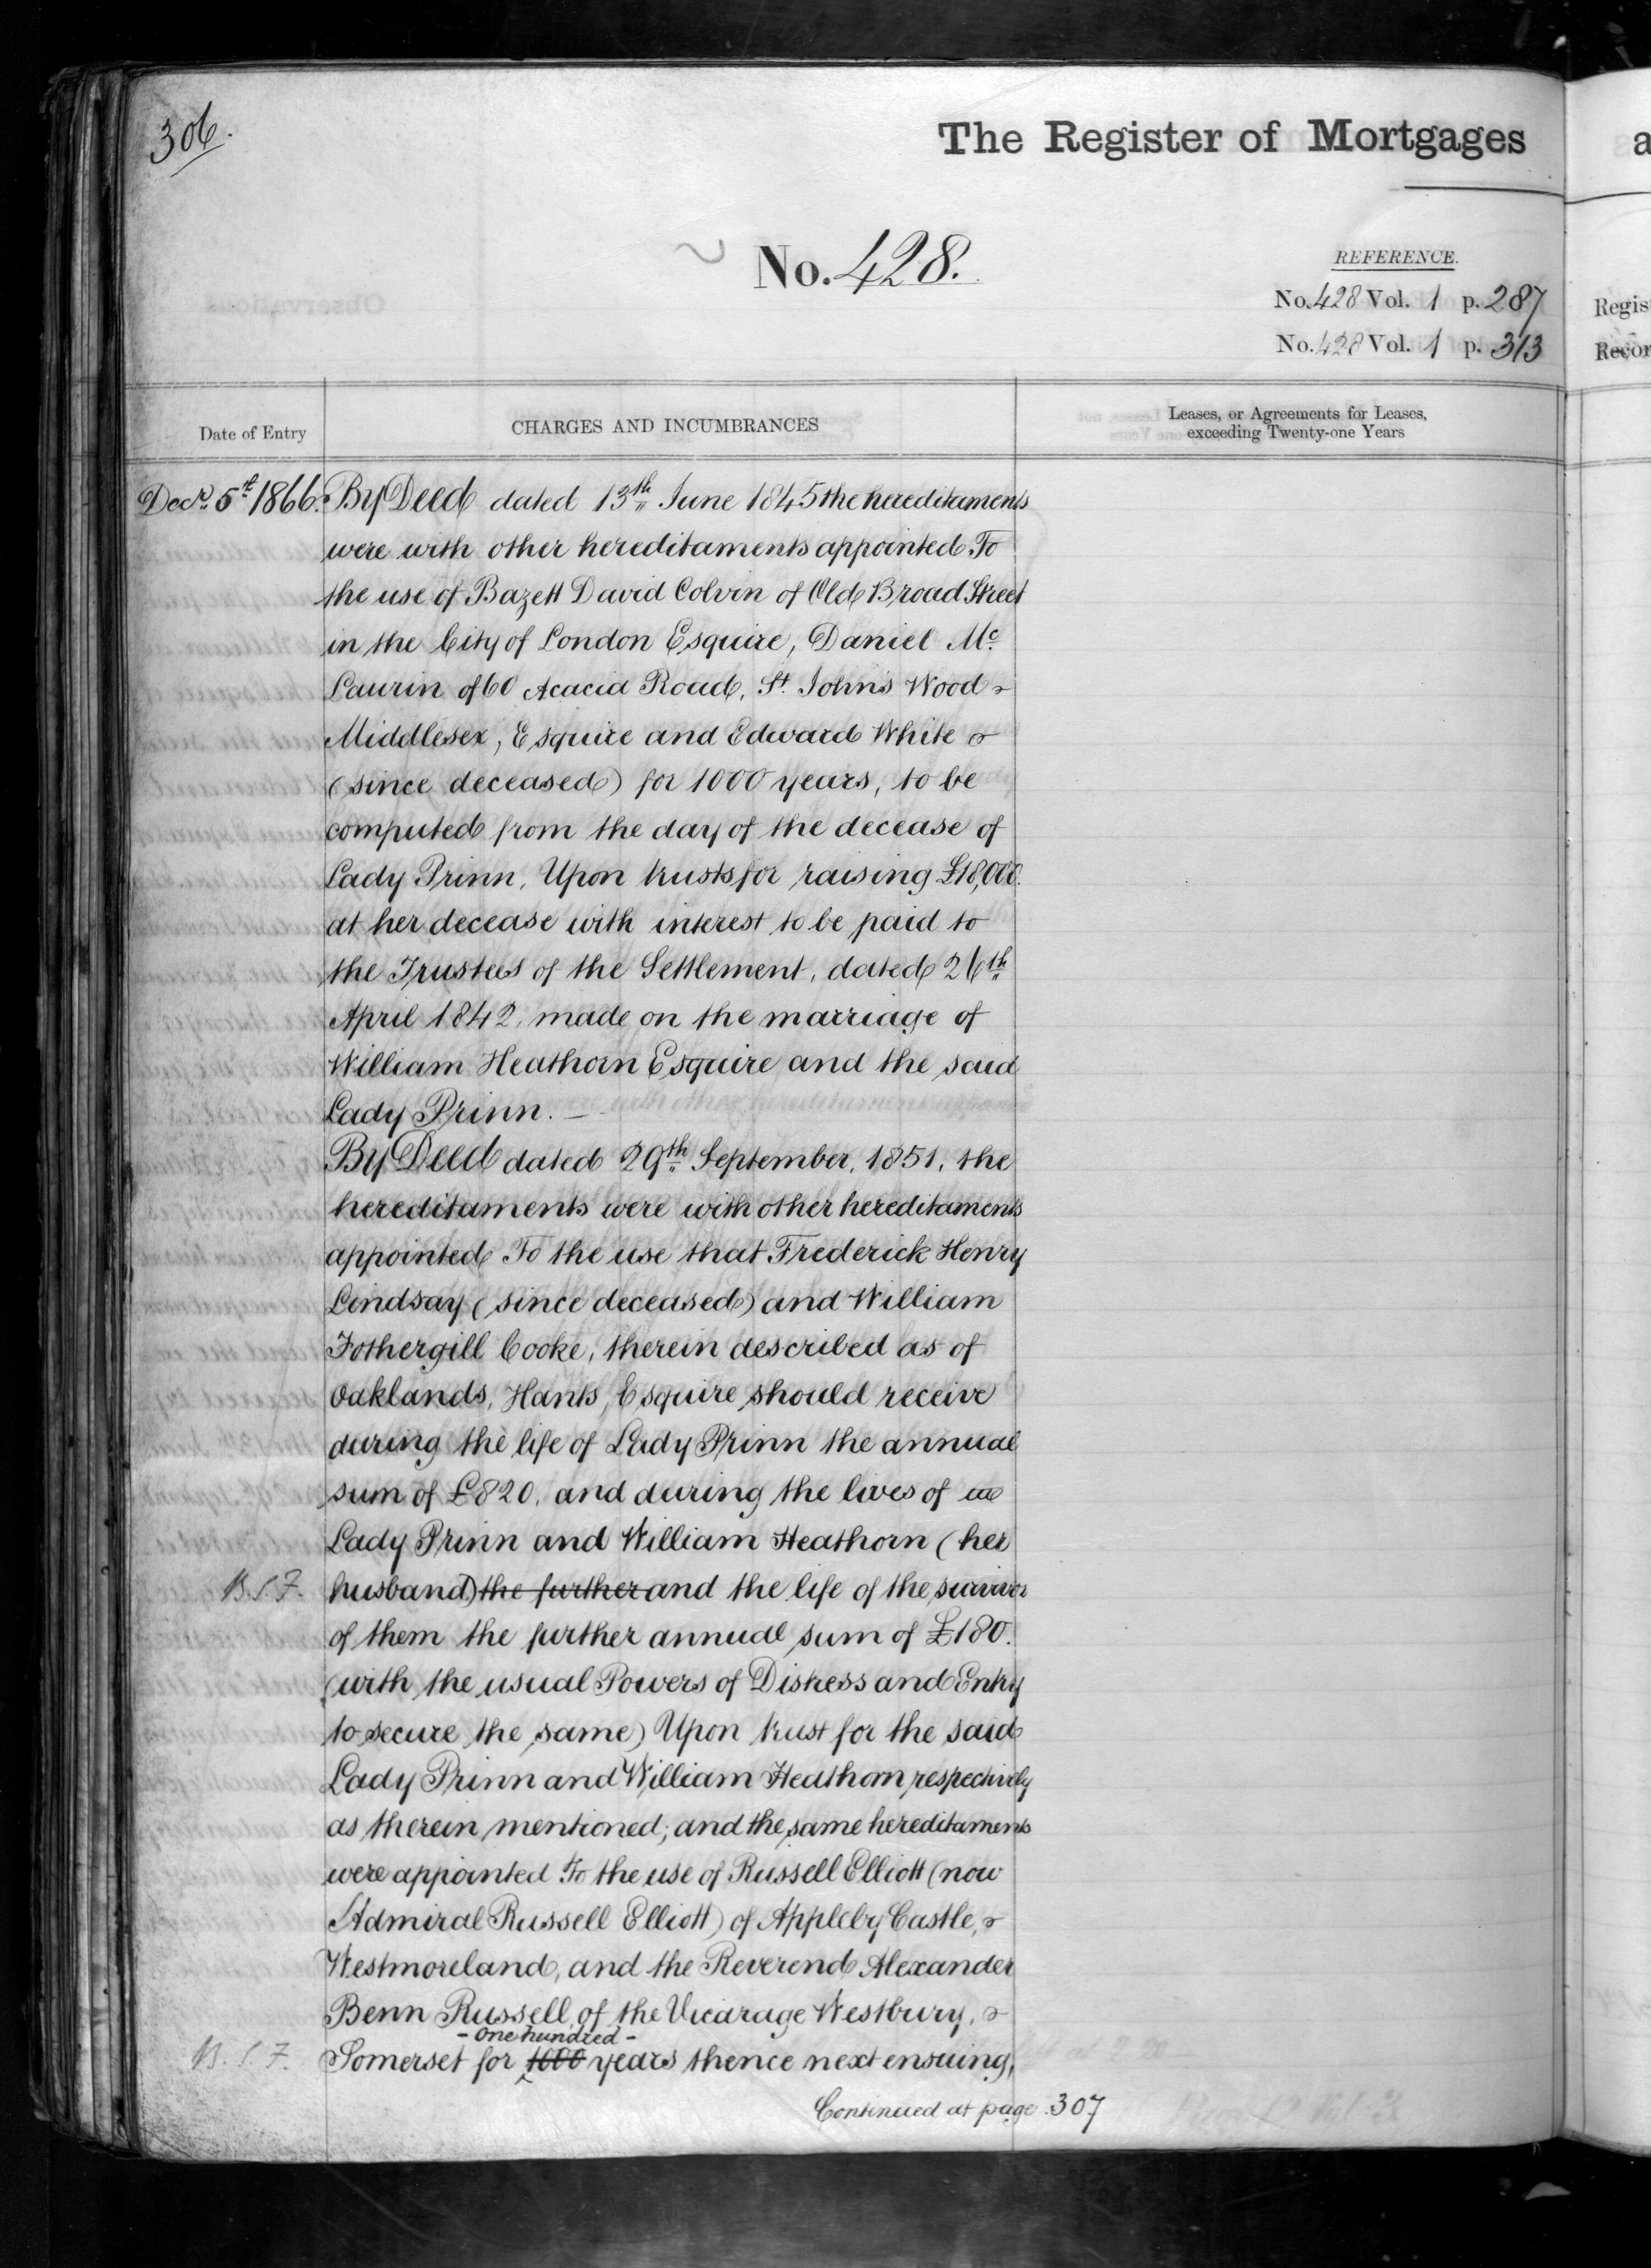 306.
The Register of Mortgages
No. 428.
REFERENCE.
No. 428 Vol. 1 p. 287
No. 428 Vol. 1 p. 313
Regis
Recor
Date of Entry
CHARGES AND INCUMBRANCES
Leases, or Agreements for Leases,
exceeding Twenty-one Years
Decr. 5th 1866. By Deed dated 13th June 1845 the hereditaments
were with other hereditaments appointed To
the use of Bazett David Colvin of Old Broad Street
in the City of London Esquire, Daniel Mc
Laurin of 60 Acacia Road, St. John's Wood
Middlesex, Esquire and Edward White
(since deceased) for 1000 years, to be
computed from the day of the decease of
Lady Prinn, Upon trusts for raising £18,000.
at her decease with interest to be paid to
the Trustees of the Settlement, dated 26th
April 1842, made on the marriage of
William Heathorn Esquire and the said
Lady Prinn. —
By Deed dated 29th September, 1851, the
hereditaments were with other hereditaments
appointed To the use that Frederick Henry
Lindsay (since deceased) and William
Fothergill Cooke, therein described as of
Oaklands, Hants, Esquire should receive
during the life of Lady Prinn the annual
sum of £820, and during the lives of
Lady Prinn and William Heathorn (her
B.S.F. husband) the further and the life of the survivor
of them the further annual sum of £180.
(with the usual Powers of Distress and Entry
to secure the same) Upon trust for the said
Lady Prinn and William Heathorn respectively
as therein mentioned; and the same hereditaments
were appointed To the use of Russell Elliott (now
Admiral Russell Elliott) of Appleby Castle,
Westmoreland, and the Reverend Alexander
Benn Russell, of the Vicarage Westbury,
- one hundred -
B.S.F. Somerset for 1000 years thence next ensuing,
Continued at page 307